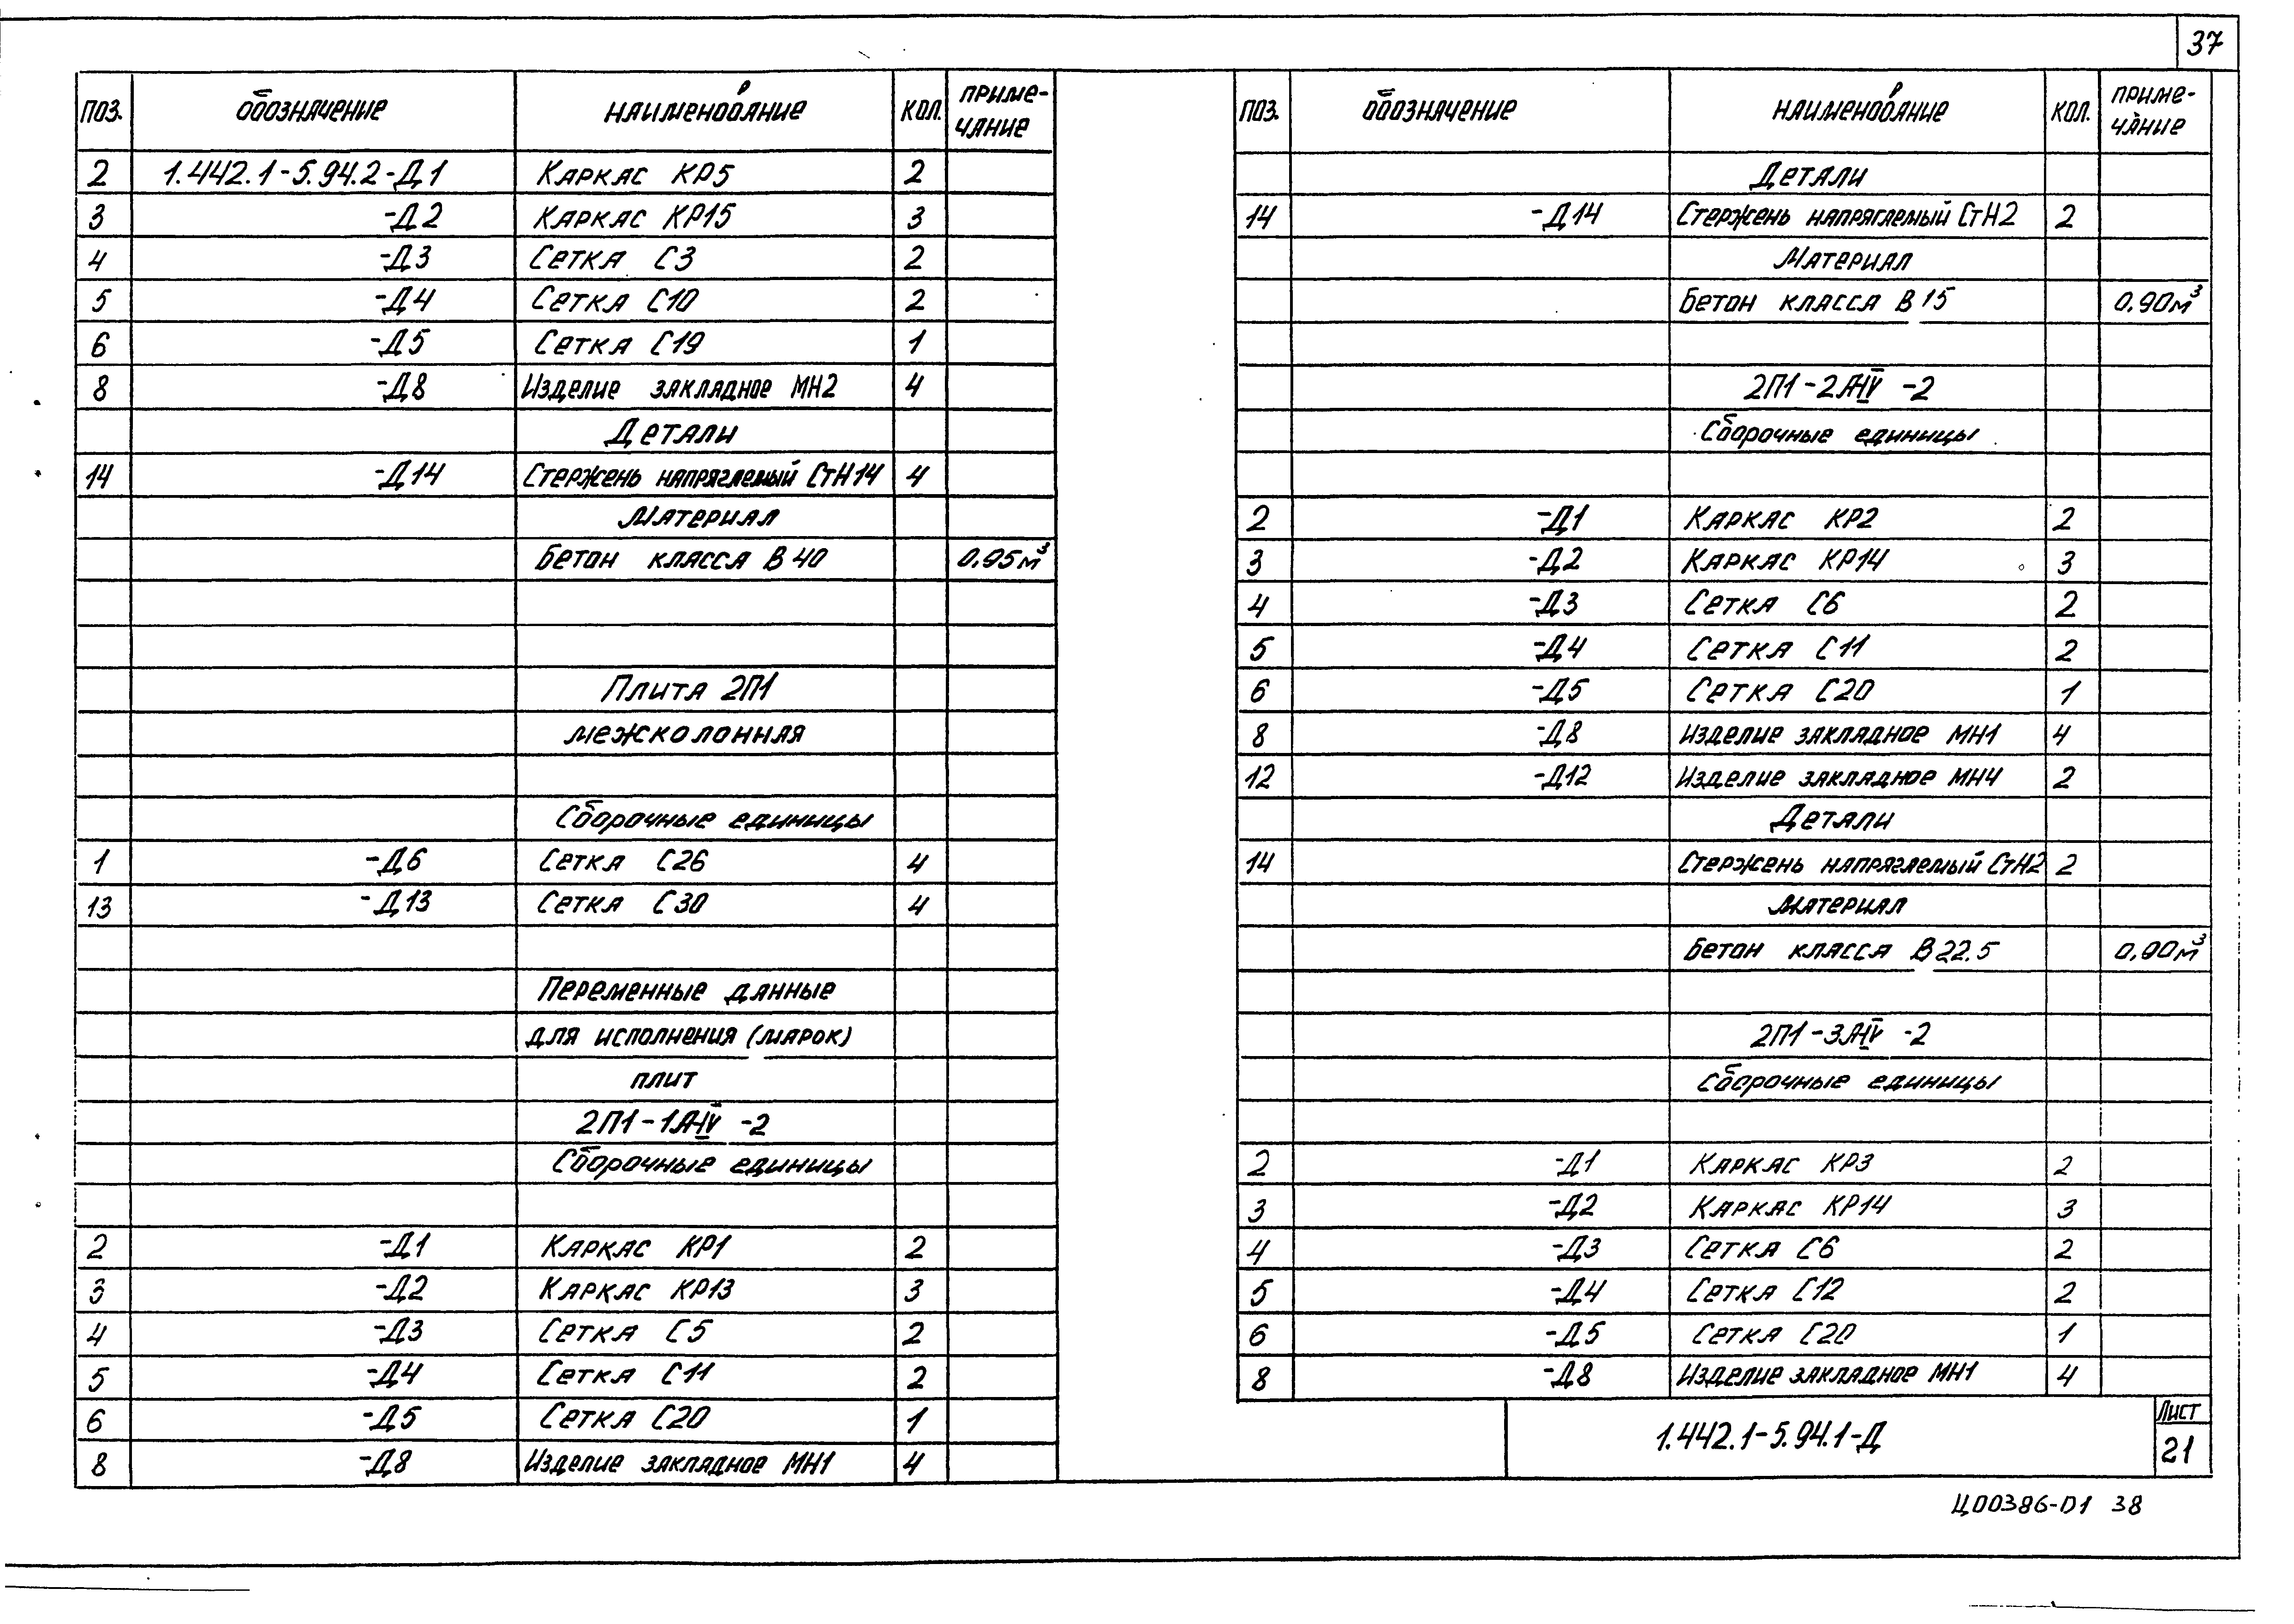 37
ПОЗ. Обозначение Наименование Кол. Приме-
чание
2 1.442.1-5.94.2-Д1 Каркас КР5 2
3 -Д2 Каркас КР15 3
4 -Д3 Сетка С3 2
5 -Д4 Сетка С10 2
6 -Д5 Сетка С19 1
8 -Д8 Изделие закладное МН2 4
Детали
14 -Д14 Стержень напрягаемый СтН14 4
Материал
Бетон класса В40 0,95м³
Плита 2П1
межколонная
Сборочные единицы
1 -Д6 Сетка С26 4
13 -Д13 Сетка С30 4
Переменные данные
для исполнения (марок)
плит
2П1-1АIV -2
Сборочные единицы
2 -Д1 Каркас КР1 2
3 -Д2 Каркас КР13 3
4 -Д3 Сетка С5 2
5 -Д4 Сетка С11 2
6 -Д5 Сетка С20 1
8 -Д8 Изделие закладное МН1 4
ПОЗ. Обозначение Наименование Кол. Приме-
чание
Детали
14 -Д14 Стержень напрягаемый СтН2 2
Материал
Бетон класса В15 0,90м³
2П1-2АIV -2
Сборочные единицы
2 -Д1 Каркас КР2 2
3 -Д2 Каркас КР14 3
4 -Д3 Сетка С6 2
5 -Д4 Сетка С11 2
6 -Д5 Сетка С20 1
8 -Д8 Изделие закладное МН1 4
12 -Д12 Изделие закладное МН4 2
Детали
14 Стержень напрягаемый СтН2 2
Материал
Бетон класса В22.5 0,90м³
2П1-3АIV -2
Сборочные единицы
2 -Д1 Каркас КР3 2
3 -Д2 Каркас КР14 3
4 -Д3 Сетка С6 2
5 -Д4 Сетка С12 2
6 -Д5 Сетка С20 1
8 -Д8 Изделие закладное МН1 4
1.442.1-5.94.1-Д
Лист
21
Ц00386-01 38